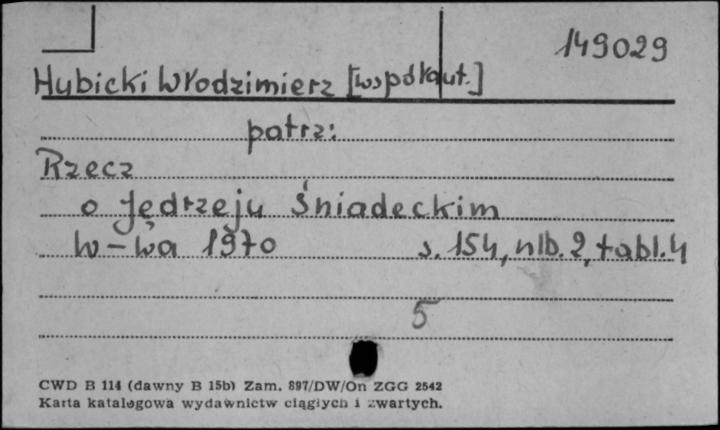 149029
Hubicki Włodzimierz [współaut.]
patrz:
Rzecz
o Jędrzeju Śniadeckim
W-wa 1970 s. 154, nlb. 2, tabl. 4
5
CWD B 114 (dawny B 15b) Zam. 897/DW/On ZGG 2542
Karta katalogowa wydawnictw ciągłych i zwartych.